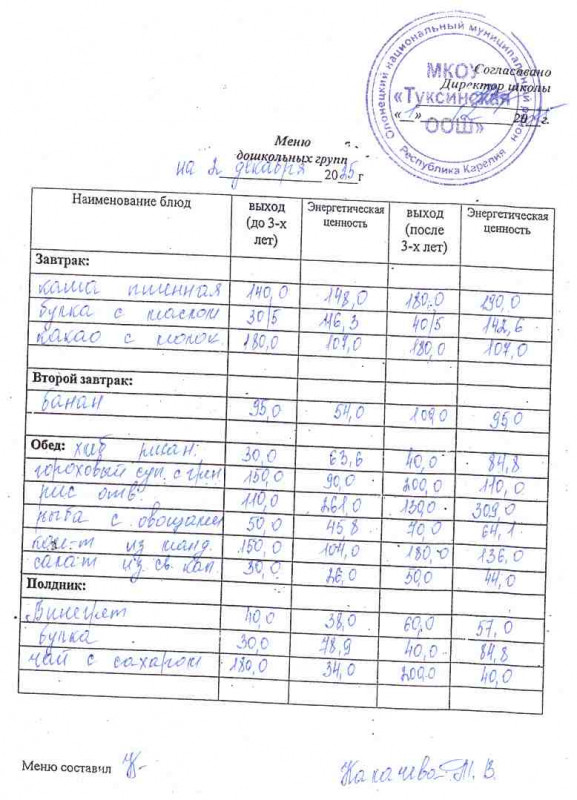 Согласовано
Директор школы
« » 20 г.
Олонецкий национальный муниципальный район
МКОУ
«Туксинская
ООШ»
Республика Карелия
Меню
дошкольных групп
на 2 декабря 2025 г
Наименование блюд выход (до 3-х лет) Энергетическая ценность выход (после 3-х лет) Энергетическая ценность
Завтрак:
каша пшенная 140,0 148,0 180,0 190,0
булка с маслом 30/5 116,3 40/5 142,6
какао с молок 180,0 107,0 180,0 107,0
Второй завтрак:
банан 95,0 54,0 109,0 95,0
Обед: хлеб ржан. 30,0 63,6 40,0 84,8
гороховый суп с грен 150,0 90,0 200,0 110,0
рис отв 110,0 261,0 130,0 309,0
рыба с овощами 50,0 45,8 70,0 64,1
комп-т из манд. 150,0 104,0 180,0 136,0
салат из св. кап 30,0 26,0 50,0 44,0
Полдник:
Винегрет 40,0 38,0 60,0 57,0
булка 30,0 78,9 40,0 84,8
чай с сахаром 180,0 34,0 200,0 40,0
Меню составил